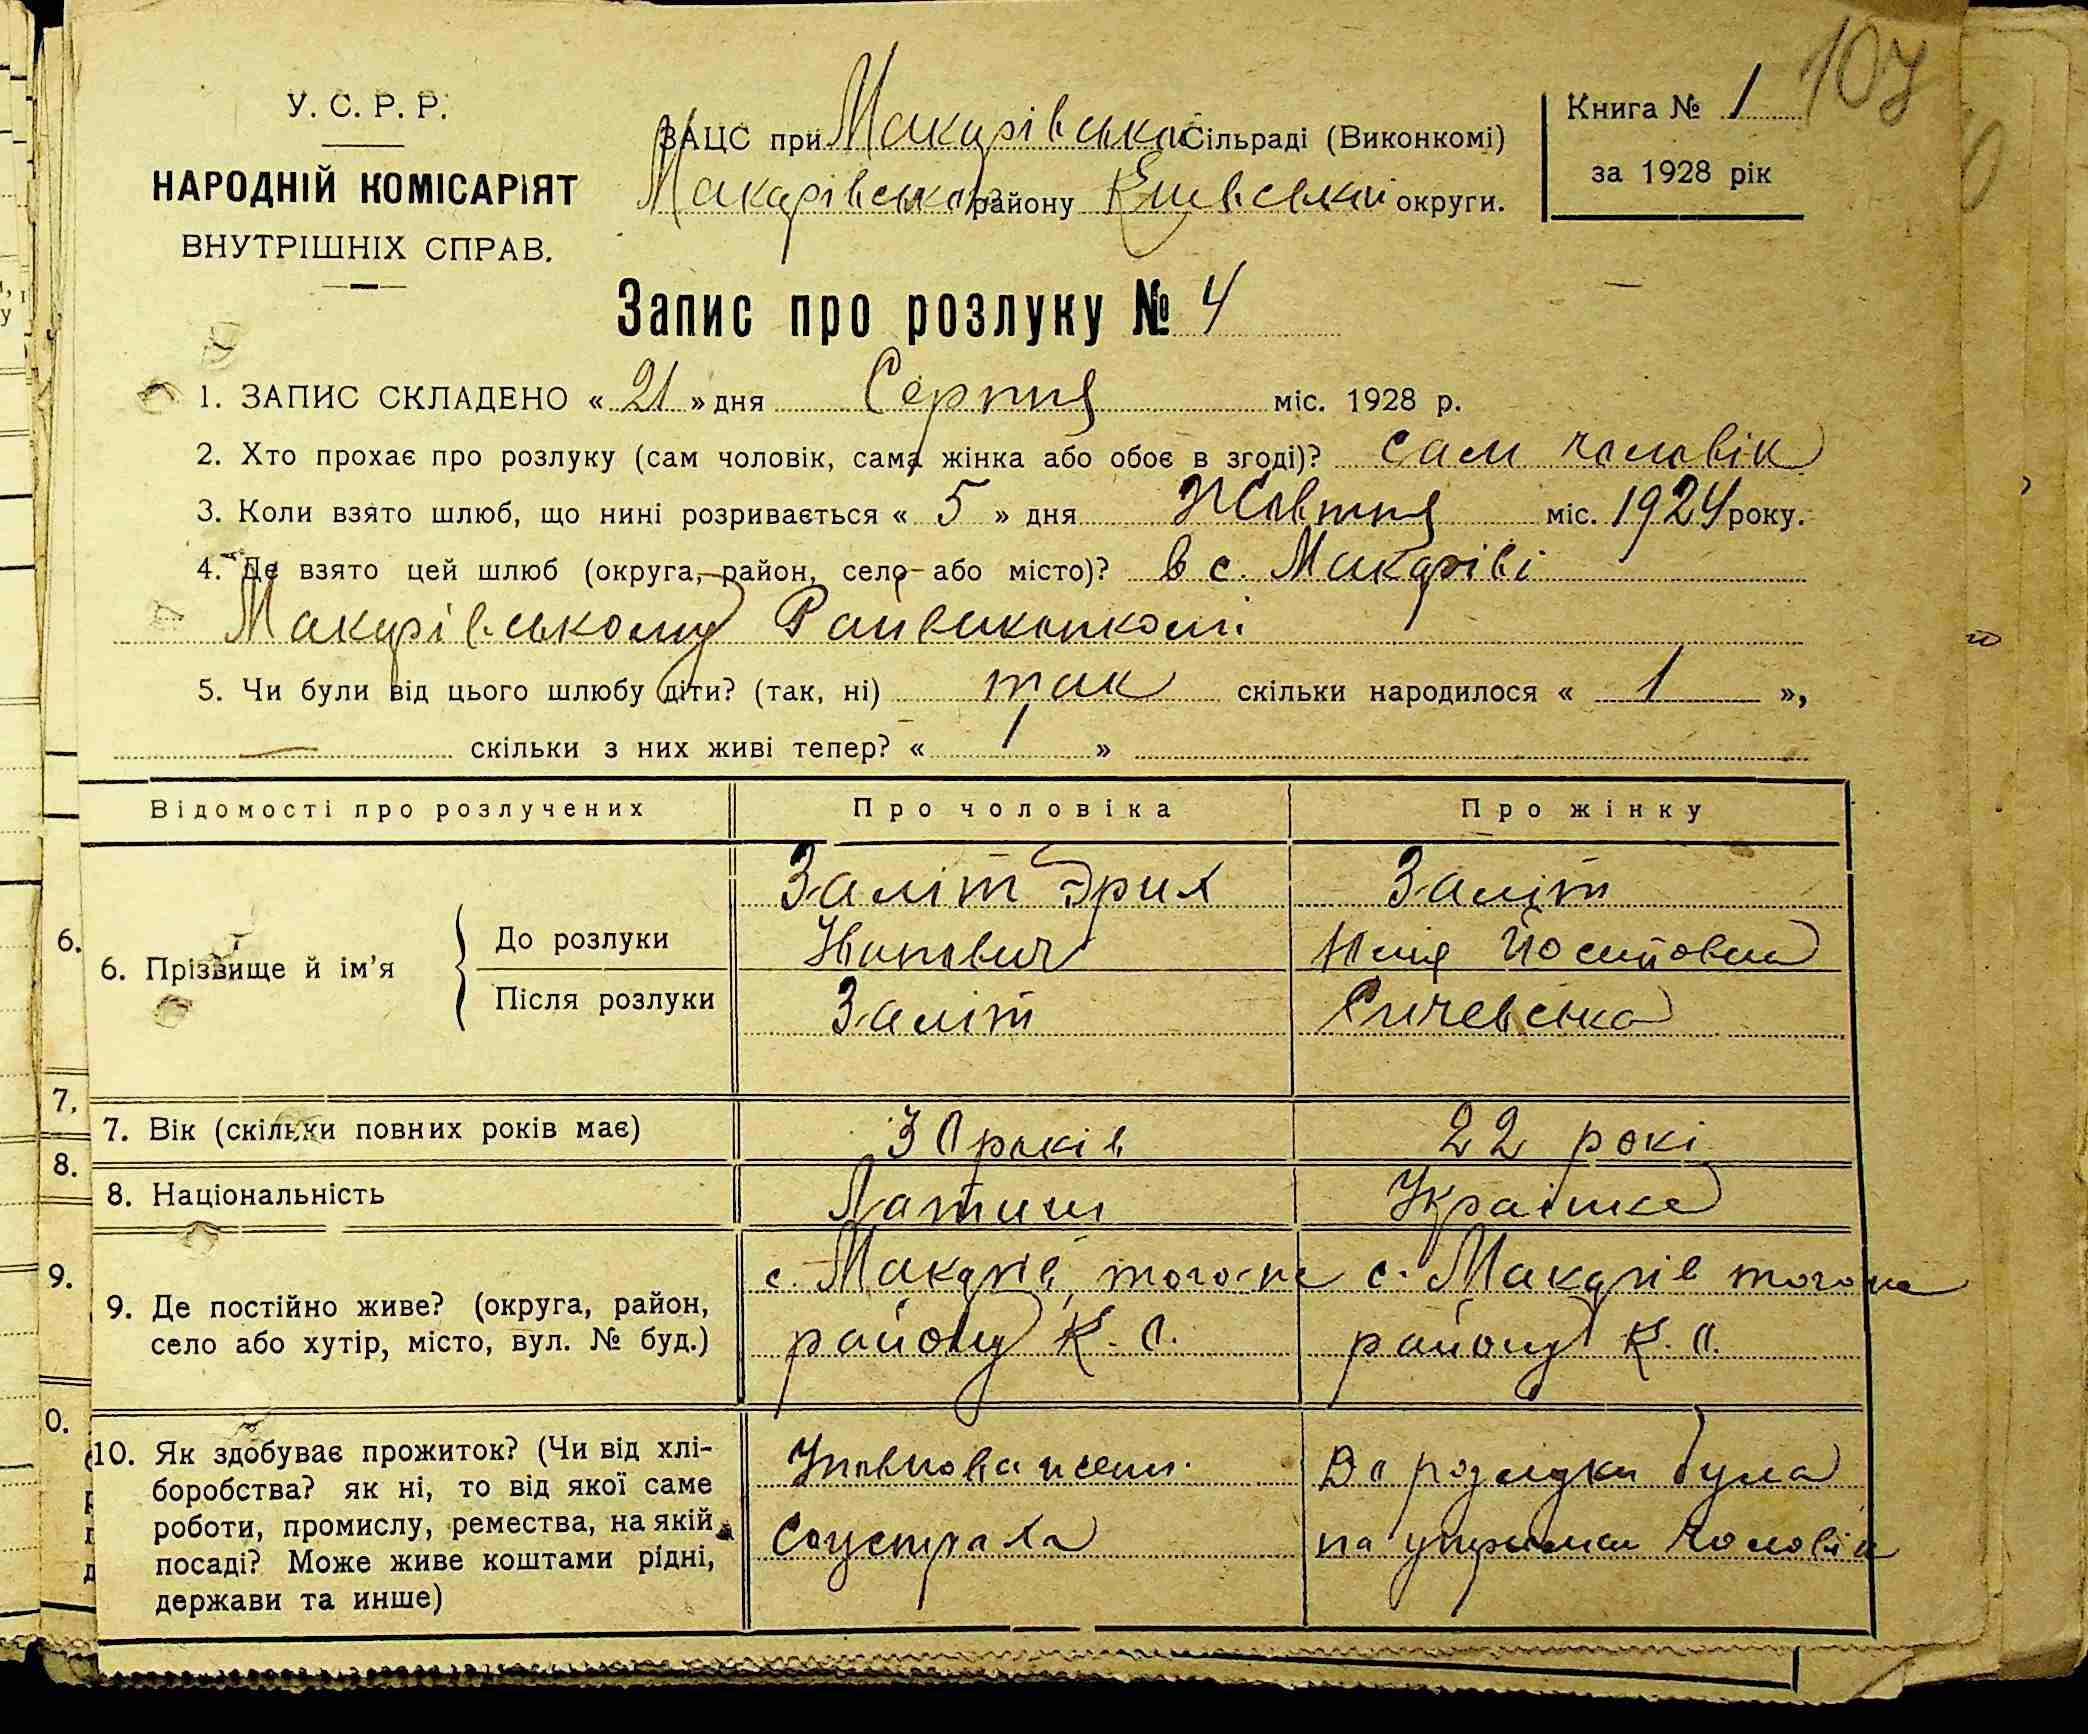 107
У. С. Р. Р.
НАРОДНІЙ КОМІСАРІЯТ
ВНУТРІШНІХ СПРАВ.
ЗАЦС при Макарівській Сільраді (Виконкомі)
Макарівського району Київської округи.
Книга № 1
за 1928 рік
Запис про розлуку № 4
1. ЗАПИС СКЛАДЕНО « 21 » дня Серпня міс. 1928 р.
2. Хто прохає про розлуку (сам чоловік, сама жінка або обоє в згоді)? сам чоловік
3. Коли взято шлюб, що нині розривається « 5 » дня Жовтня міс. 1924 року.
4. Де взято цей шлюб (округа, район, село або місто)? в с. Макарові
Макарівському Райвиконкомі
5. Чи були від цього шлюбу діти? (так, ні) так скільки народилося « 1 »,
скільки з них живі тепер? « 1 »
Відомості про розлучених Про чоловіка Про жінку
6. Прізвище й ім'я
До розлуки
Заліт Эрих
Іванович
Заліт
Юлія Йосиповна
Після розлуки
Заліт
Сичевська
7. Вік (скільки повних років має) 30 років 22 рокі
8. Національність Латиш Українка
9. Де постійно живе? (округа, район,
село або хутір, місто, вул. № буд.)
с. Макарів того-ж
району К. О.
с. Макарів того ж
району К. О.
10. Як здобуває прожиток? (Чи від хлі-
боробства? як ні, то від якої саме
роботи, промислу, ремества, на якій
посаді? Може живе коштами рідні,
держави та инше)
Уповноважен.
Соцстраха
До розлуки була
на утримані чоловіка